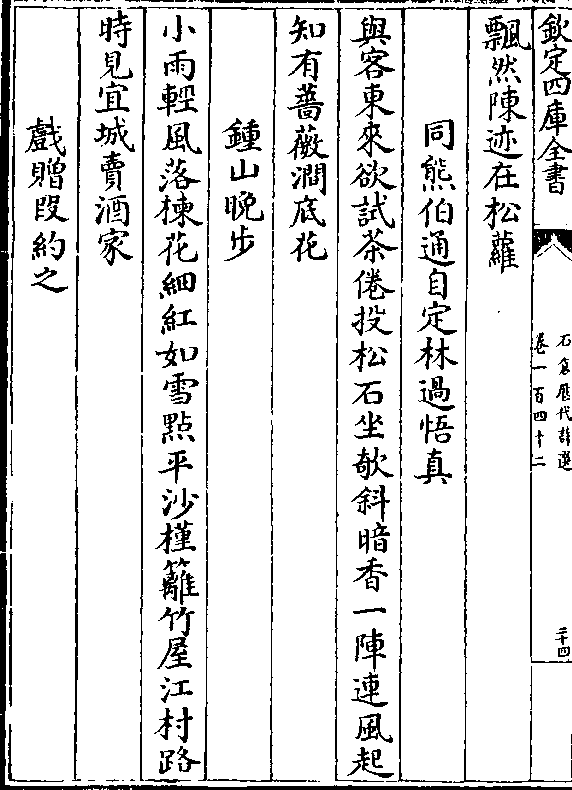 欽定四庫全書
石倉歷代詩選
卷一百四十二
二十四
飄然陳迹在松蘿
同熊伯通自定林過悟真
與客東來欲試茶倦投松石坐欹斜暗香一陣連風起
知有薔薇澗底花
鍾山晚步
小雨輕風落楝花細紅如雪點平沙槿籬竹屋江村路
時見宜城賣酒家
戲贈段約之